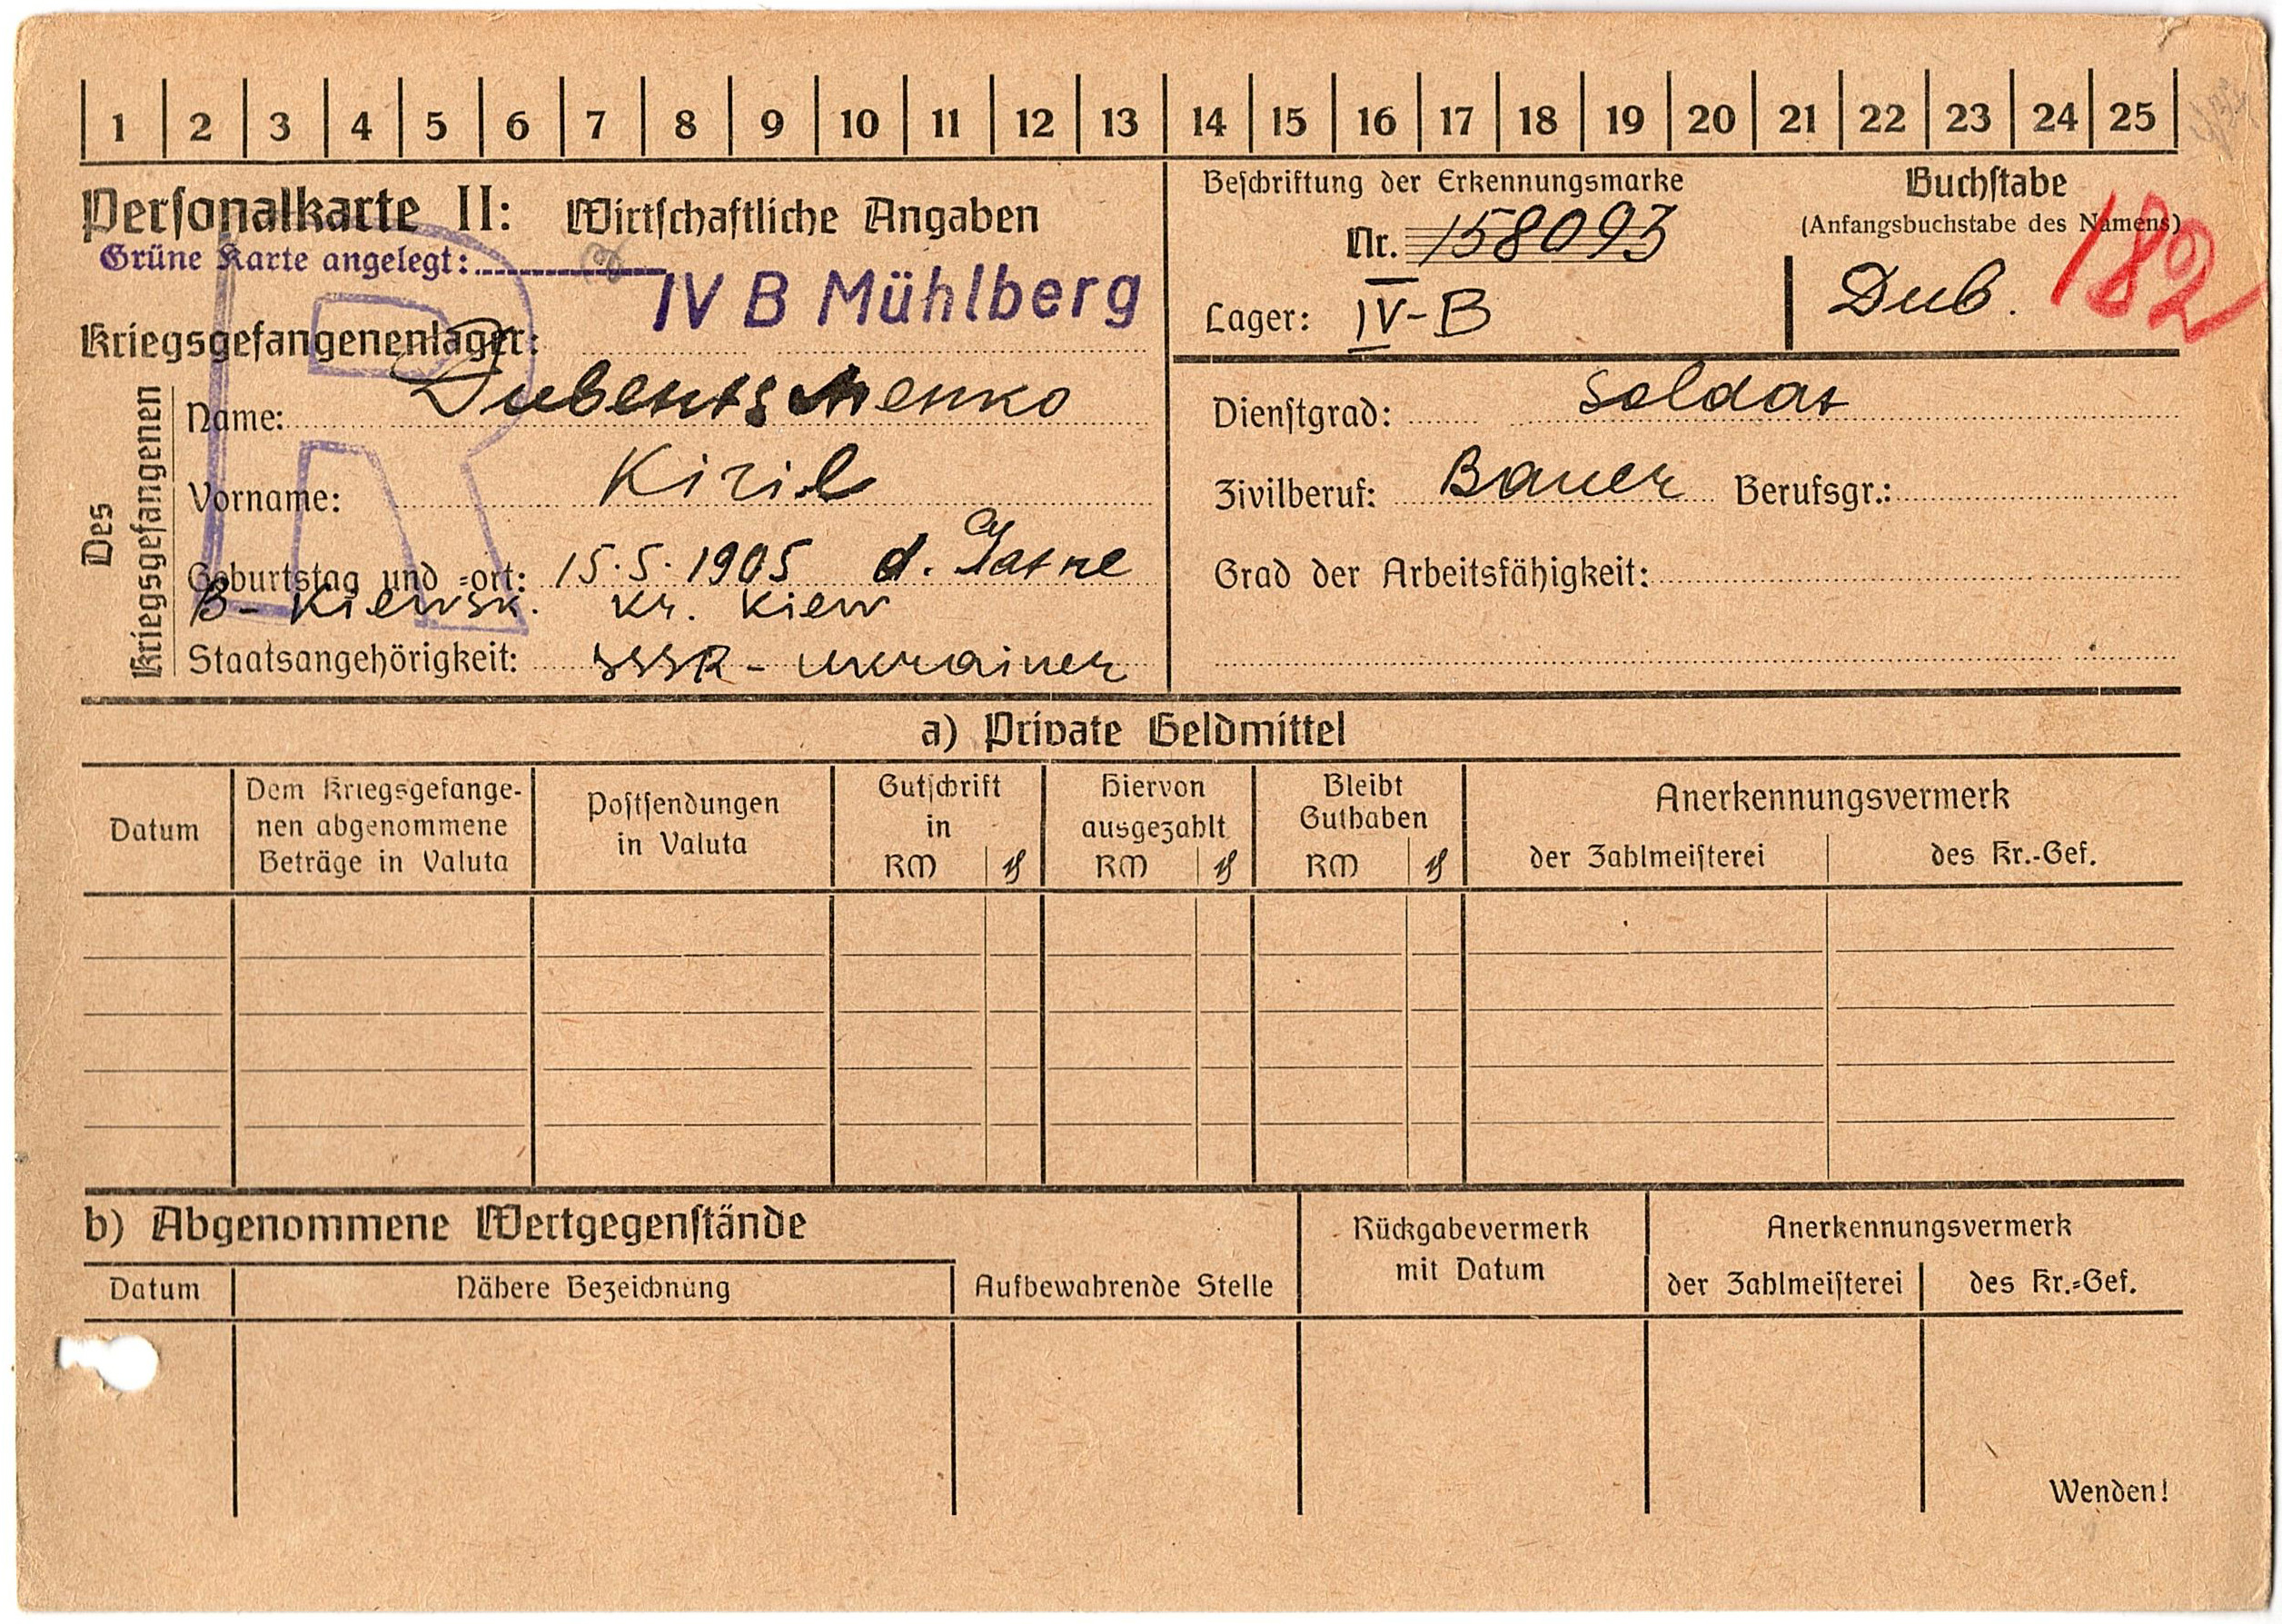 1 2 3 4 5 6 7 8 9 10 11 12 13 14 15 16 17 18 19 20 21 22 23 24 25
Personalkarte II: Wirtschaftliche Angaben
Grüne Karte angelegt:
IV B Mühlberg
Kriegsgefangenenlager:
Des Kriegsgefangenen
Name: Dubentschenko
Vorname: Kiril
Geburtstag und =ort: 15.5.1905 d. Gatne
B- Kiewsk. Kr. Kiew
Staatsangehörigkeit: SSSR - Ukrainer
Beschriftung der Erkennungsmarke
Nr. 158093
Lager: IV-B
Buchstabe
(Anfangsbuchstabe des Namens)
Dub.
182
Dienstgrad: Soldat
Zivilberuf: Bauer Berufsgr.:
Grad der Arbeitsfähigkeit:
R
a) Private Geldmittel
Datum
Dem Kriegsgefange-
nen abgenommene
Beträge in Valuta
Postsendungen
in Valuta
Gutschrift
in
RM ₰
Hiervon
ausgezahlt
RM ₰
Bleibt
Guthaben
RM ₰
Anerkennungsvermerk
der Zahlmeisterei des Kr.-Gef.
b) Abgenommene Wertgegenstände
Datum Nähere Bezeichnung Aufbewahrende Stelle
Rückgabevermerk
mit Datum
Anerkennungsvermerk
der Zahlmeisterei des Kr.=Gef.
Wenden!